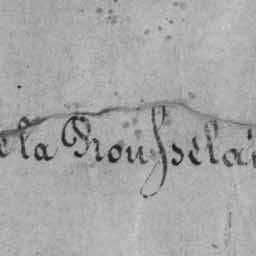 e la Prousselai